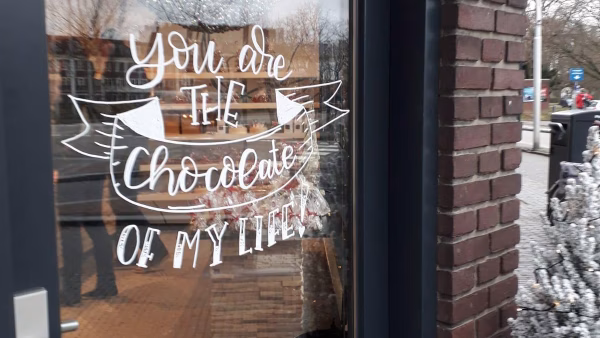 you are
THE
Chocolate
OF MY LIFE!